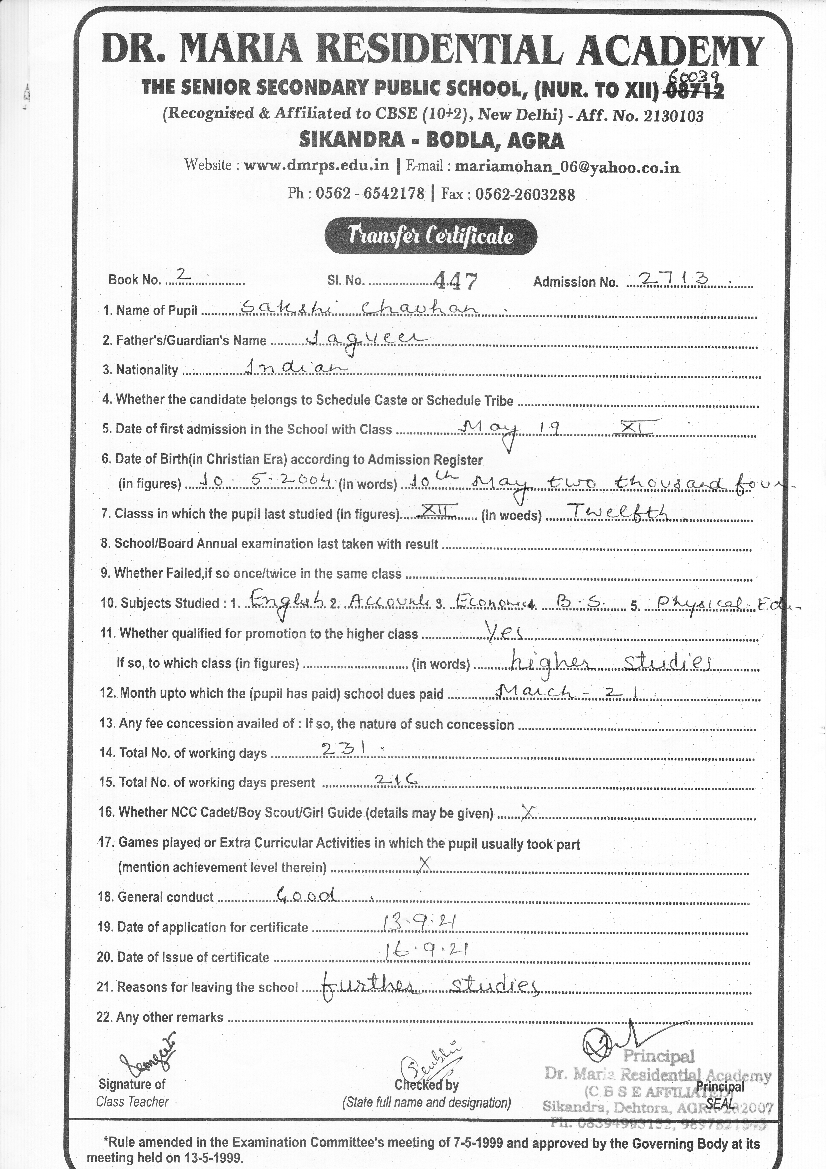 DR. MARIA RESIDENTIAL ACADEMY
60039
THE SENIOR SECONDARY PUBLIC SCHOOL, (NUR. TO XII) 08712
(Recognised & Affiliated to CBSE (10+2), New Delhi) - Aff. No. 2130103
SIKANDRA - BODLA, AGRA
Website : www.dmrps.edu.in | E-mail : mariamohan_06@yahoo.co.in
Ph : 0562 - 6542178 | Fax : 0562-2603288
Transfer Certificate
Book No. 2 Sl. No. 447 Admission No. 2713
1. Name of Pupil Sakshi Chauhan
2. Father's/Guardian's Name Jagveer
3. Nationality Indian
4. Whether the candidate belongs to Schedule Caste or Schedule Tribe
5. Date of first admission in the School with Class May 19 XI
6. Date of Birth(in Christian Era) according to Admission Register
(in figures) 10 - 5 - 2004 (in words) 10th May two thousand four
7. Classs in which the pupil last studied (in figures) XII (in woeds) Twelfth
8. School/Board Annual examination last taken with result
9. Whether Failed,if so once/twice in the same class
10. Subjects Studied : 1. English 2. Accounts 3. Economics 4. B.S. 5. Physical Edu-
11. Whether qualified for promotion to the higher class Yes
If so, to which class (in figures) (in words) higher studies
12. Month upto which the (pupil has paid) school dues paid March - 21
13. Any fee concession availed of : If so, the nature of such concession
14. Total No. of working days 231
15. Total No. of working days present 216
16. Whether NCC Cadet/Boy Scout/Girl Guide (details may be given) X
17. Games played or Extra Curricular Activities in which the pupil usually took part
(mention achievement level therein) X
18. General conduct Good
19. Date of application for certificate 13-9-21
20. Date of Issue of certificate 16-9-21
21. Reasons for leaving the school further studies
22. Any other remarks
Principal
Dr. Maria Residential Academy
Signature of Checked by (C B S E AFFILIATED) Principal
Class Teacher (State full name and designation) Sikandra, Dehtora, AGRA-282007 SEAL
*Rule amended in the Examination Committee's meeting of 7-5-1999 and approved by the Governing Body at its
meeting held on 13-5-1999.